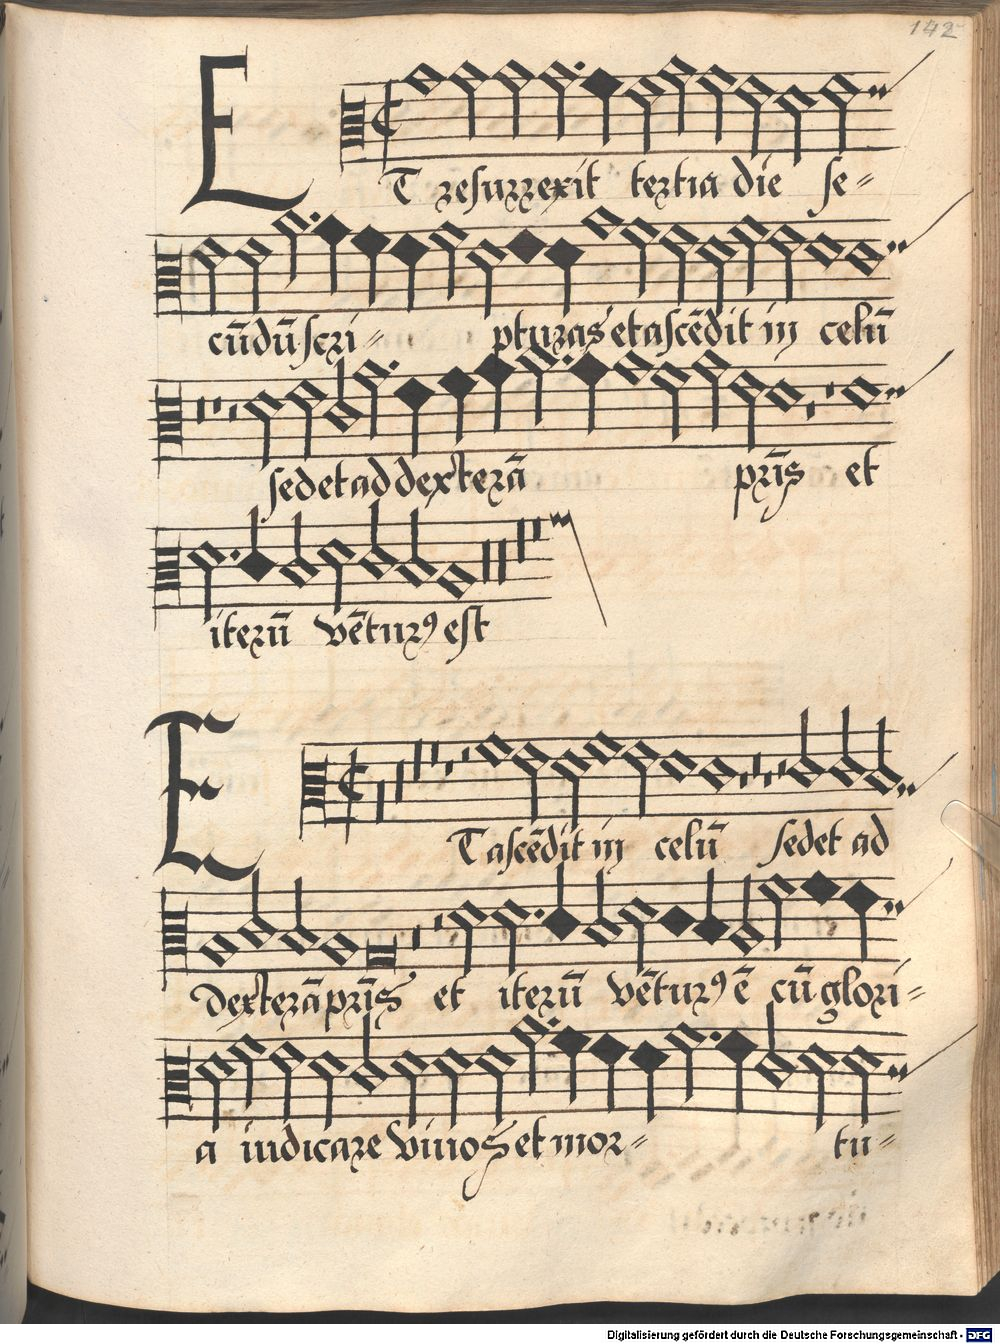 142
ET resurrexit tertia die se=
cūdū scri= pturas et ascēdit in celū
sedet ad dexterā pr̄is et
iterū vētur⁹ est
ET ascēdit in celū sedet ad
dexterā pr̄is et iterū vētur⁹ ē cū glori=
a iudicare vivos et mor= tu=
Digitalisierung gefördert durch die Deutsche Forschungsgemeinschaft - DFG